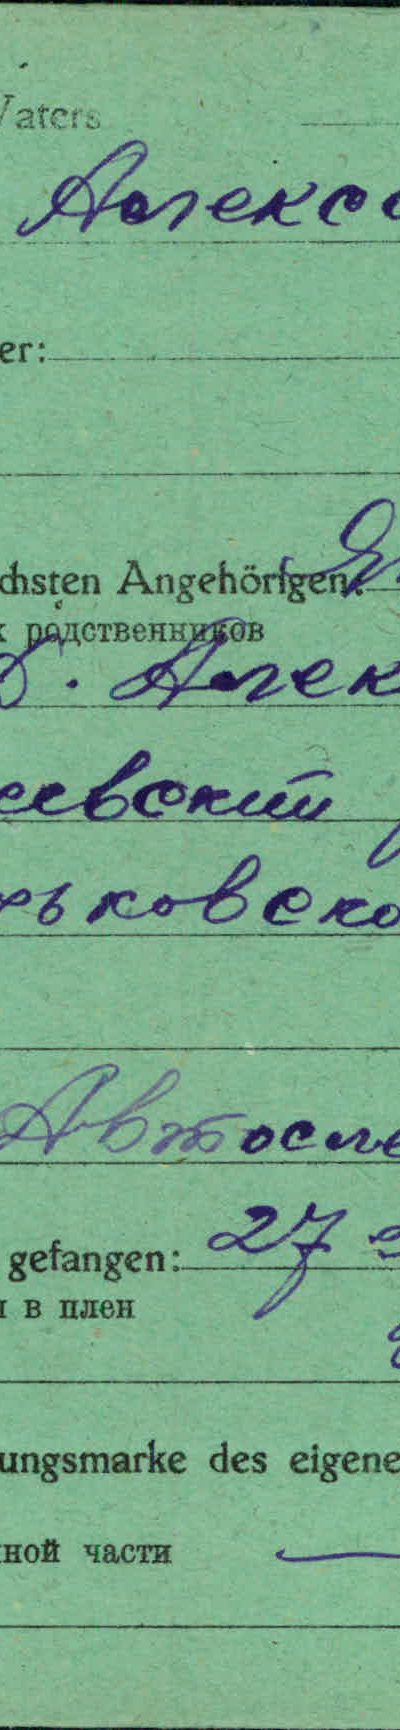 Vaters
Алекса
er:
chsten Angehörigen:
х родственников
Д. Алек
еевский
рьковско
Автосле
27
gefangen:
и в плен
ungsmarke des eigene
нной части